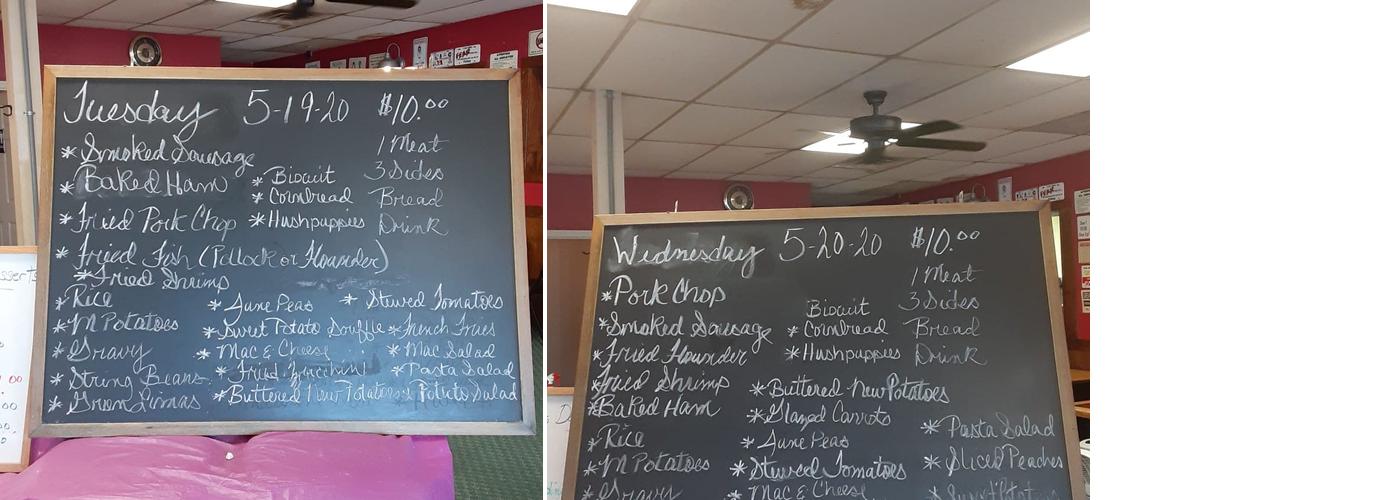 Tuesday 5-19-20 $10.00
* Smoked Sausage
1 Meat
* Baked Ham
* Biscuit
3 Sides
* Cornbread
Bread
* Fried Pork Chop
* Hushpuppies
Drink
* Fried Fish (Pollock or Flounder)
* Fried Shrimp
* Rice
* June Peas
* Stewed Tomatoes
* M Potatoes
* Sweet Potato Souffle
* French Fries
* Gravy
* Mac & Cheese
* Mac Salad
* String Beans
* Fried Zucchini
* Pasta Salad
* Green Limas
* Buttered New Potatoes
* Potato Salad
Wednesday 5-20-20 $10.00
1 Meat
* Pork Chop
Biscuit
3 Sides
* Smoked Sausage
* Cornbread
Bread
* Fried Flounder
* Hushpuppies
Drink
* Fried Shrimp
* Buttered New Potatoes
* Baked Ham
* Glazed Carrots
* Pasta Salad
* Rice
* June Peas
* Sliced Peaches
* M Potatoes
* Stewed Tomatoes
* Gravy
* Mac & Cheese